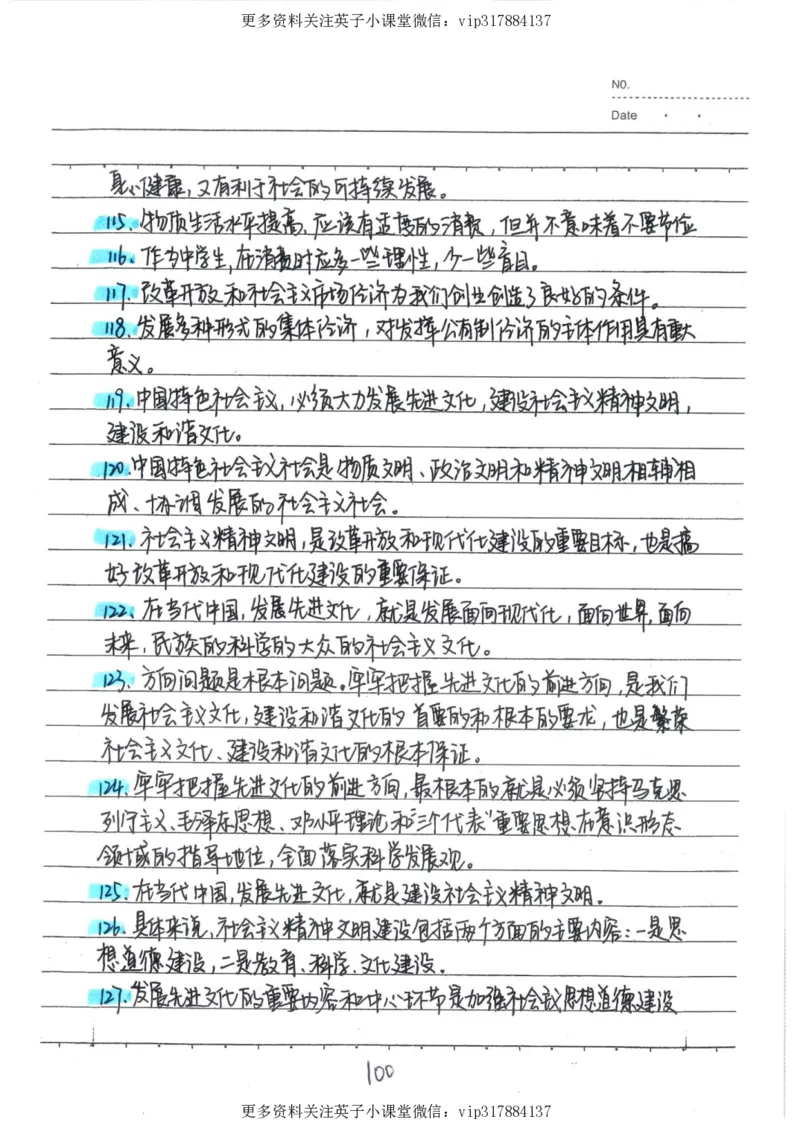 更多资料关注英子小课堂微信：vip317884137
NO.
Date
身心健康，又有利于社会的可持续发展。
115、物质生活水平提高，应该有适度的消费，但并不意味着不要节俭
116、作为中学生，在消费时应多一些理性，少一些盲目。
117、改革开放和社会主义市场经济为我们创业创造了良好的条件。
118、发展多种形式的集体经济，对发挥公有制经济的主体作用具有重大
意义。
119、中国特色社会主义，必须大力发展先进文化，建设社会主义精神文明，
建设和谐文化。
120、中国特色社会主义社会是物质文明、政治文明和精神文明相辅相
成、协调发展的社会主义社会。
121、社会主义精神文明，是改革开放和现代化建设的重要目标，也是搞
好改革开放和现代化建设的重要保证。
122、在当代中国，发展先进文化，就是发展面向现代化，面向世界，面向
未来，民族的科学的大众的社会主义文化。
123、方向问题是根本问题。牢牢把握先进文化的前进方向，是我们
发展社会主义文化，建设和谐文化的首要的和根本的要求，也是繁荣
社会主义文化、建设和谐文化的根本保证。
124、牢牢把握先进文化的前进方向，最根本的就是必须坚持马克思
列宁主义、毛泽东思想、邓小平理论和“三个代表”重要思想在意识形态
领域的指导地位，全面落实科学发展观。
125、在当代中国，发展先进文化，就是建设社会主义精神文明。
126、具体来说，社会主义精神文明建设包括两个方面的主要内容：一是思
想道德建设，二是教育、科学、文化建设。
127、发展先进文化的重要内容和中心环节是加强社会主义思想道德建设
100
更多资料关注英子小课堂微信：vip317884137